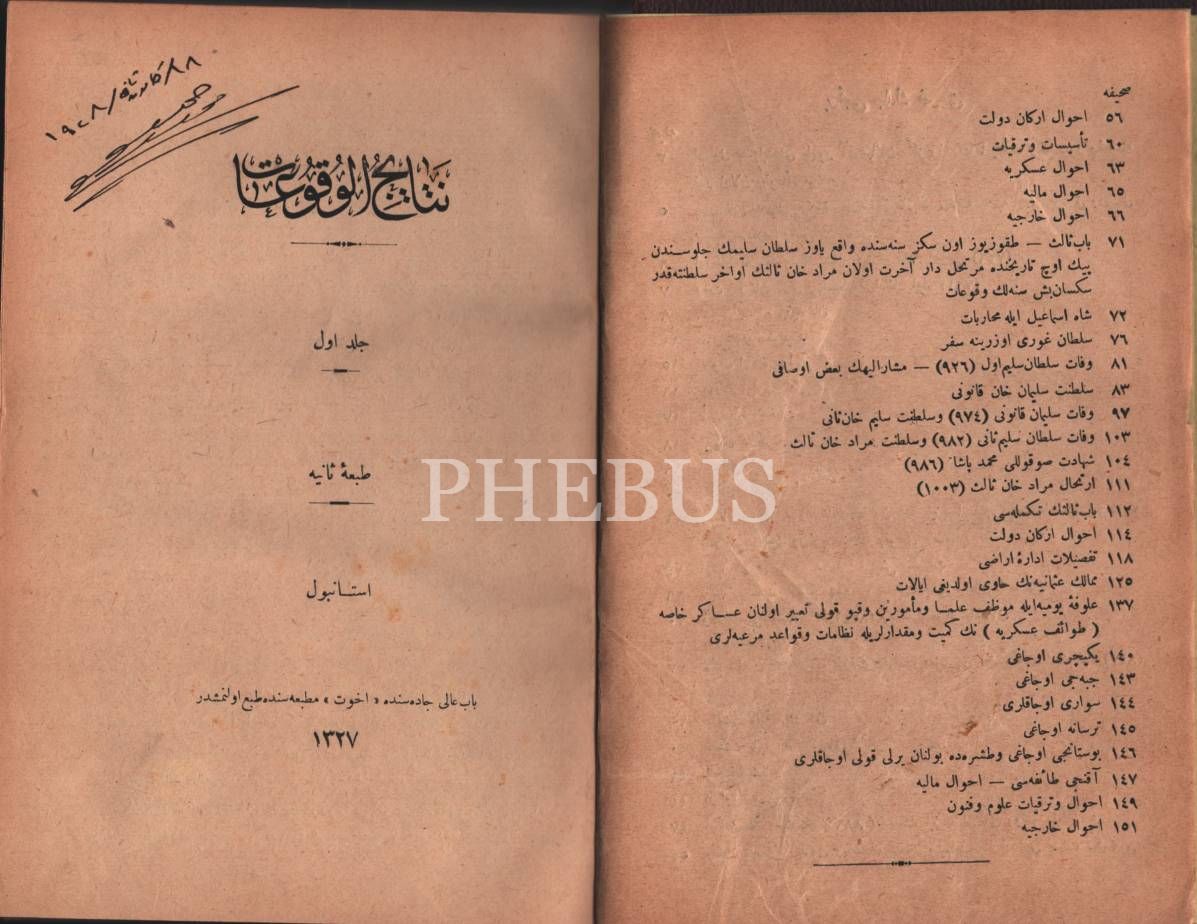 نتایج الوقوعات
جلد اول
طبعۀ ثانیه
استانبول
باب عالی جاده‌سنده «اخوت» مطبعه‌سنده طبع اولنمشدر
١٣٢٧
صحیفه
٥٦ احوال ارکان دولت
٦٠ تأسیسات وترقیات
٦٣ احوال عسکریه
٦٥ احوال مالیه
٦٦ احوال خارجیه
٧١ باب ثالث — طقوزیوز اون سکز سنه‌سنده واقع یاوز سلطان سلیمك جلوسندن
بیك اوچ تاریخنده مرتحل دار آخرت اولان مراد خان ثالثك اواخر سلطنته‌قدر
سکسان‌بش سنه‌لك وقوعات
٧٢ شاه اسماعیل ایله محاربات
٧٦ سلطان غوری اوزرینه سفر
٨١ وفات سلطان سلیم اول (٩٢٦) — مشارالیهك بعض اوصافی
٨٣ سلطنت سلیمان خان قانونی
٩٧ وفات سلیمان قانونی (٩٧٤) وسلطنت سلیم خان ثانی
١٠٣ وفات سلطان سلیم ثانی (٩٨٢) وسلطنت مراد خان ثالث
١٠٤ شهادت صوقوللی محمد پاشا (٩٨٦)
١١١ ارتحال مراد خان ثالث (١٠٠٣)
١١٢ باب ثالثك تکمله‌سی
١١٤ احوال ارکان دولت
١١٨ تفصیلات ادارۀ اراضی
١٢٥ ممالك عثمانیه‌نك حاوی اولدیغی ایالات
١٣٧ علوفۀ یومیه‌ایله موظف علما ومأمورین وقپو قولی تعبیر اولنان عساکر خاصه
( طوائف عسکریه ) نك کمیت ومقدارلریله نظامات وقواعد مرعیه‌لری
١٤٠ یکیچری اوجاغی
١٤٣ جبه‌جی اوجاغی
١٤٤ سواری اوجاقلری
١٤٥ ترسانه اوجاغی
١٤٦ بوستانجی اوجاغی وطشره‌ده بولنان یرلی قولی اوجاقلری
١٤٧ آقنجی طائفه‌سی — احوال مالیه
١٤٩ احوال وترقیات علوم وفنون
١٥١ احوال خارجیه
PHEBUS